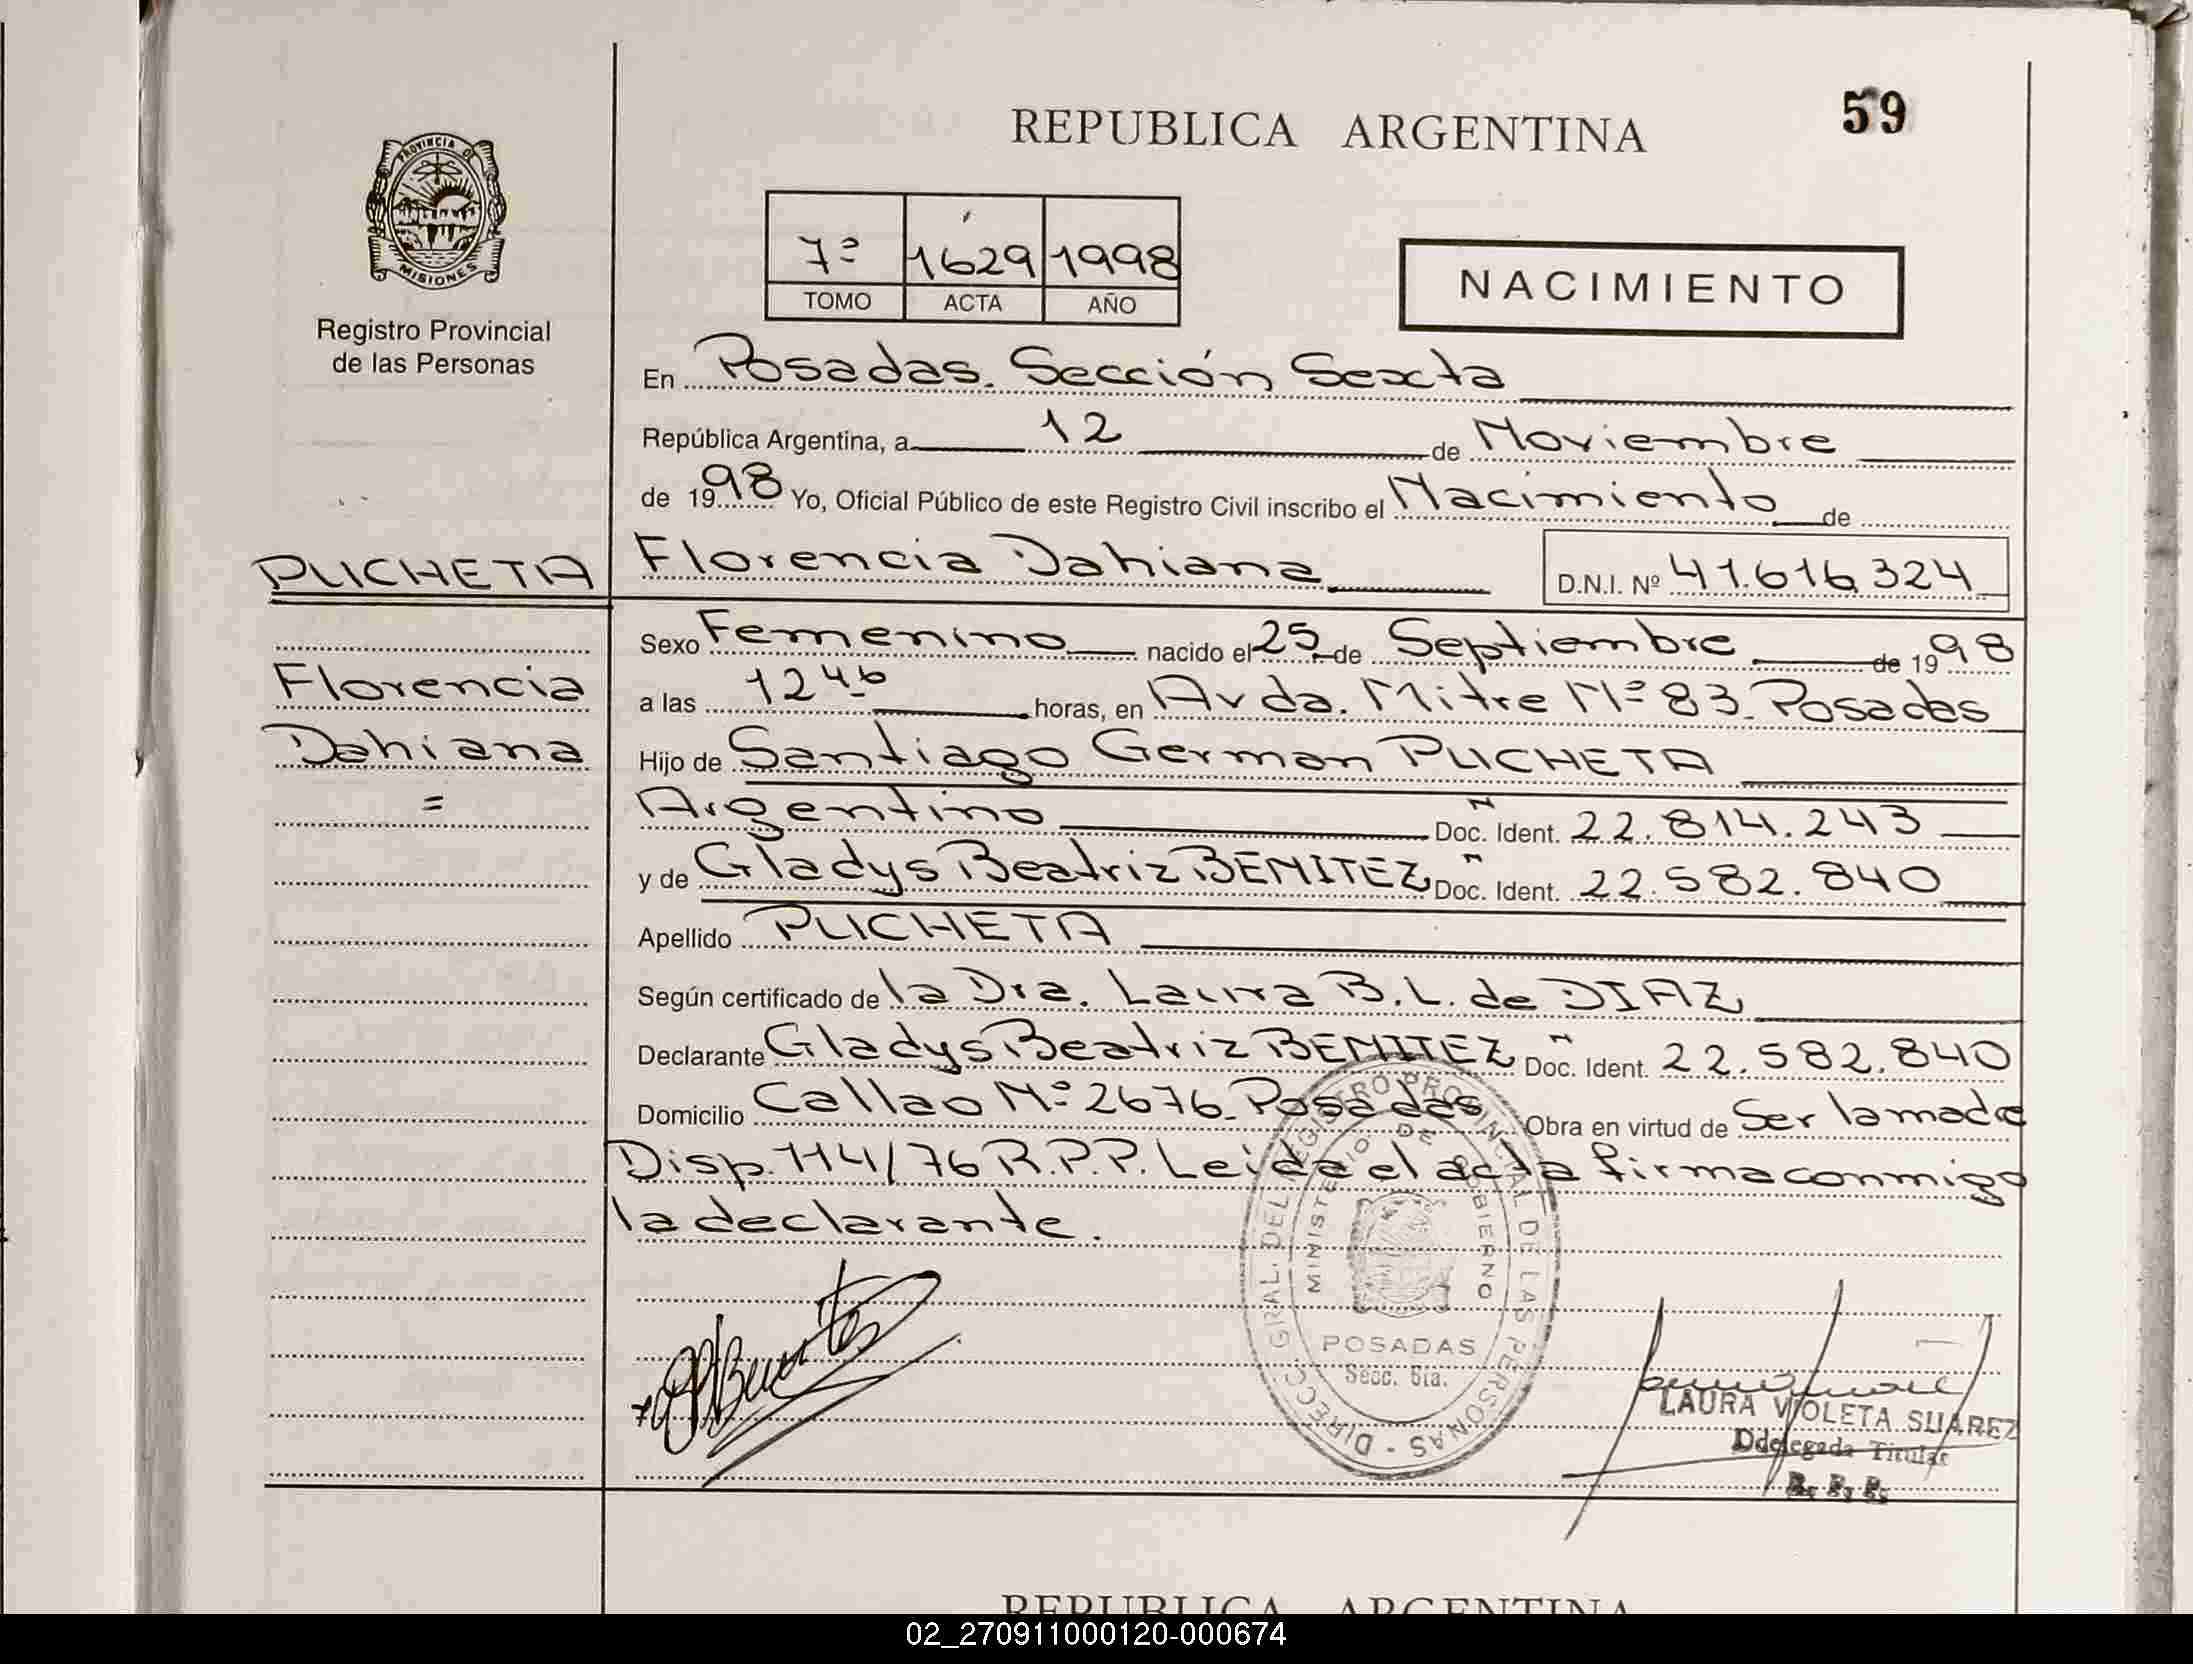 59
REPUBLICA ARGENTINA
PROVINCIA DE
MISIONES
Registro Provincial
de las Personas
7º 1629 1998
TOMO ACTA AÑO
NACIMIENTO
En Posadas. Sección Sexta
República Argentina, a 12 de Noviembre
de 1998 Yo, Oficial Público de este Registro Civil inscribo el Nacimiento de
PUCHETA Florencia Dahiana D.N.I. Nº 41.616.324
Sexo Femenino nacido el 25 de Septiembre de 1998
Florencia a las 12 45 horas, en Avda. Mitre Nº 83. Posadas
Dahiana Hijo de Santiago German PUCHETA
= Argentino Doc. Ident. N 22.814.243
y de Gladys Beatriz BENITEZ Doc. Ident. N 22.582.840
Apellido PUCHETA
Según certificado de la Dra. Laura B.L. de DIAZ
Declarante Gladys Beatriz BENITEZ Doc. Ident. N 22.582.840
Domicilio Callao Nº 2676. Posadas Obra en virtud de Ser la madre
Disp. 114/76 R.P.P. Leida el acta firma conmigo
la declarante.
DIRECC. GRAL. DEL REGISTRO PROVINCIAL DE LAS PERSONAS -
MINISTERIO DE GOBIERNO
POSADAS
Secc. 6ta.
LAURA VIOLETA SUAREZ
Ddelegada Titular
R. P. P.
REPUBLICA ARGENTINA
02_270911000120-000674